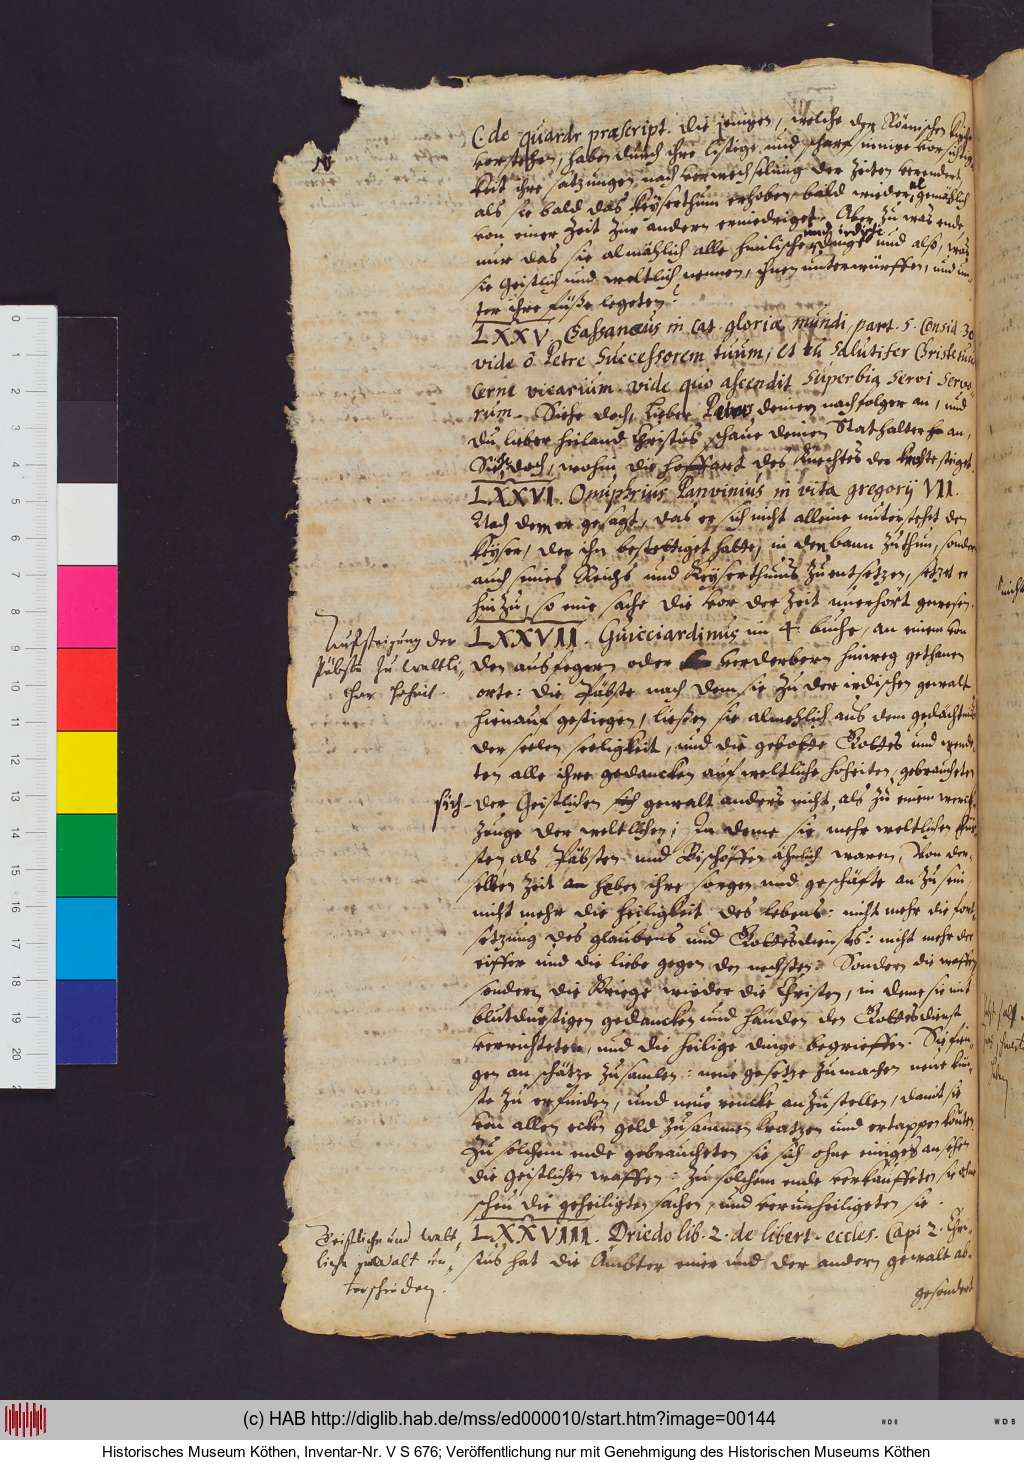 C. de quadr præscript. Die jenigen, welche der Römischen Kirche
vorstehen, haben durch ihre listige und scharfsinnige vorsichtig-
keit ihre satzungen nach verwechselung der Zeiten verendert,
als sie bald das Keyserthum erhoben, bald wieder gemählich
von einer Zeit zur andern erniedriget. Aber zu was ende,
nur das sie almählich alle himlische und irdische dinge und alß, was
sie Geistlich und weltlich nennen, ihnen unterwürffen, und un-
ter ihre füße legeten?
LXXV. Cassanæus in Cat. gloriæ mundi, part. 5. Consid. 30
vide ô Petre Successorem tuum, et tu salutifer Christe tuum
Cerne vicarium. vide quo ascendit superbia servi servo-
rum. Siehe doch, lieber Petre, deinen nachfolger an, und
du lieber heiland Christus, schaue deinen Stathalter an,
Siehe doch, wohin die hoffart des Knechtes der Knechte steiget.
LXXVI. Onuphrius Panvinius in vita gregorij VII.
Nach dem er gesagt, das er sich nicht alleine unterstehet den
Keyser, der ihn bestettiget hatte, in den bann zuthun, sondern
auch seines Reichs und Keyserthums zuentsetzen, setzet er
hinzu, so eine sache die vor der Zeit unerhört gewesen.
Aufsteigung der
Päbste zu weltli-
cher hoheit.
LXXVII. Guicciardinus im 4 buche, an einem von
den ausfegern oder verderbern hinweg gethanen
orte: die Päbste nach dem sie zu der irdischen gewalt
hienauf gestiegen, ließen sie almehlich aus dem gedächtnus
der seelen seeligkeit, und die gebotte Gottes und wende-
ten alle ihre gedancken auf weltliche hoheiten, gebraucheten
sich der Geistlichen gewalt anders nicht, als zu einem werck-
zeuge der weltlichen; In deme sie mehr weltlichen Für-
sten als Päbsten und Bischöffen ähnlich waren, Von der-
selben Zeit an haben ihre sorgen und geschäfte an zu sein
nicht mehr die heiligkeit des lebens: nicht mehr die fort-
setzung des glaubens und Gottesdiensts: nicht mehr der
eiffer und die liebe gegen den nechsten: Sondern die waffen
sondern die Kriege wieder die Christen, in deme sie mit
blutdürstigen gedancken und händen den Gottesdienst
verrichteten, und die heilige dinge begrieffen. Sie fien-
gen an schätze zusamlen: neue gesetze zumachen neue kün-
ste zu erfinden, und neue rencke anzustellen, damit sie
von allen ecken geld zusammen kratzen und ertappen könten.
Zu solchem ende gebraucheten sie sich ohne einiges ansehen
die Geistlichen waffen: Zu solchem ende verkauffeten sie ohne
scheu die geheiligten sachen, und verunheiligeten sie.
Geistliche und welt-
liche gewalt un-
terscheiden.
LXXVIII. Driedo lib. 2. de libert. eccles. Cap. 2. Chri-
stus hat die Ämbter einer und der andern gewalt ab-
gesondert
0
1
2
3
4
5
6
7
8
9
10
11
12
13
14
15
16
17
18
19
20
(c) HAB http://diglib.hab.de/mss/ed000010/start.htm?image=00144
WDB
WDB
Historisches Museum Köthen, Inventar-Nr. V S 676; Veröffentlichung nur mit Genehmigung des Historischen Museums Köthen